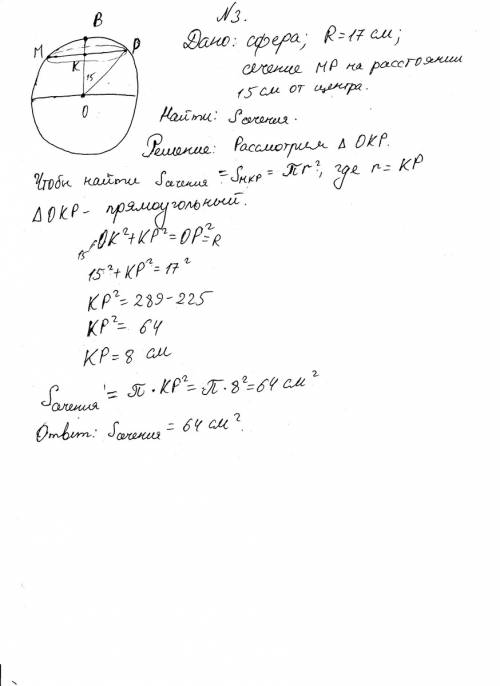 N3.
B
M
P
K
15
O
Дано: сфера; R=17 см;
сечение MP на расстоянии
15 см от центра.
Найти: Sсечения.
Решение: Рассмотрим △ OKP.
Чтобы найти Sсечения = SMKP = πr², где r = KP
△OKP - прямоугольный.
OK²+KP²=OP²=R
15
15²+KP²=17²
KP²=289-225
KP²= 64
KP=8 см
Sсечения = π·KP²=π·8²=64 см²
Ответ: Sсечения = 64 см².